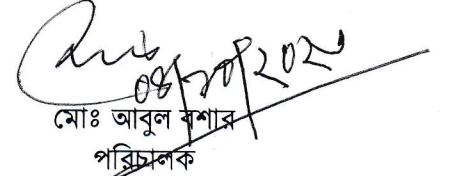 ০৪/১০/২০২০
মোঃ আবুল বশার
পরিচালক